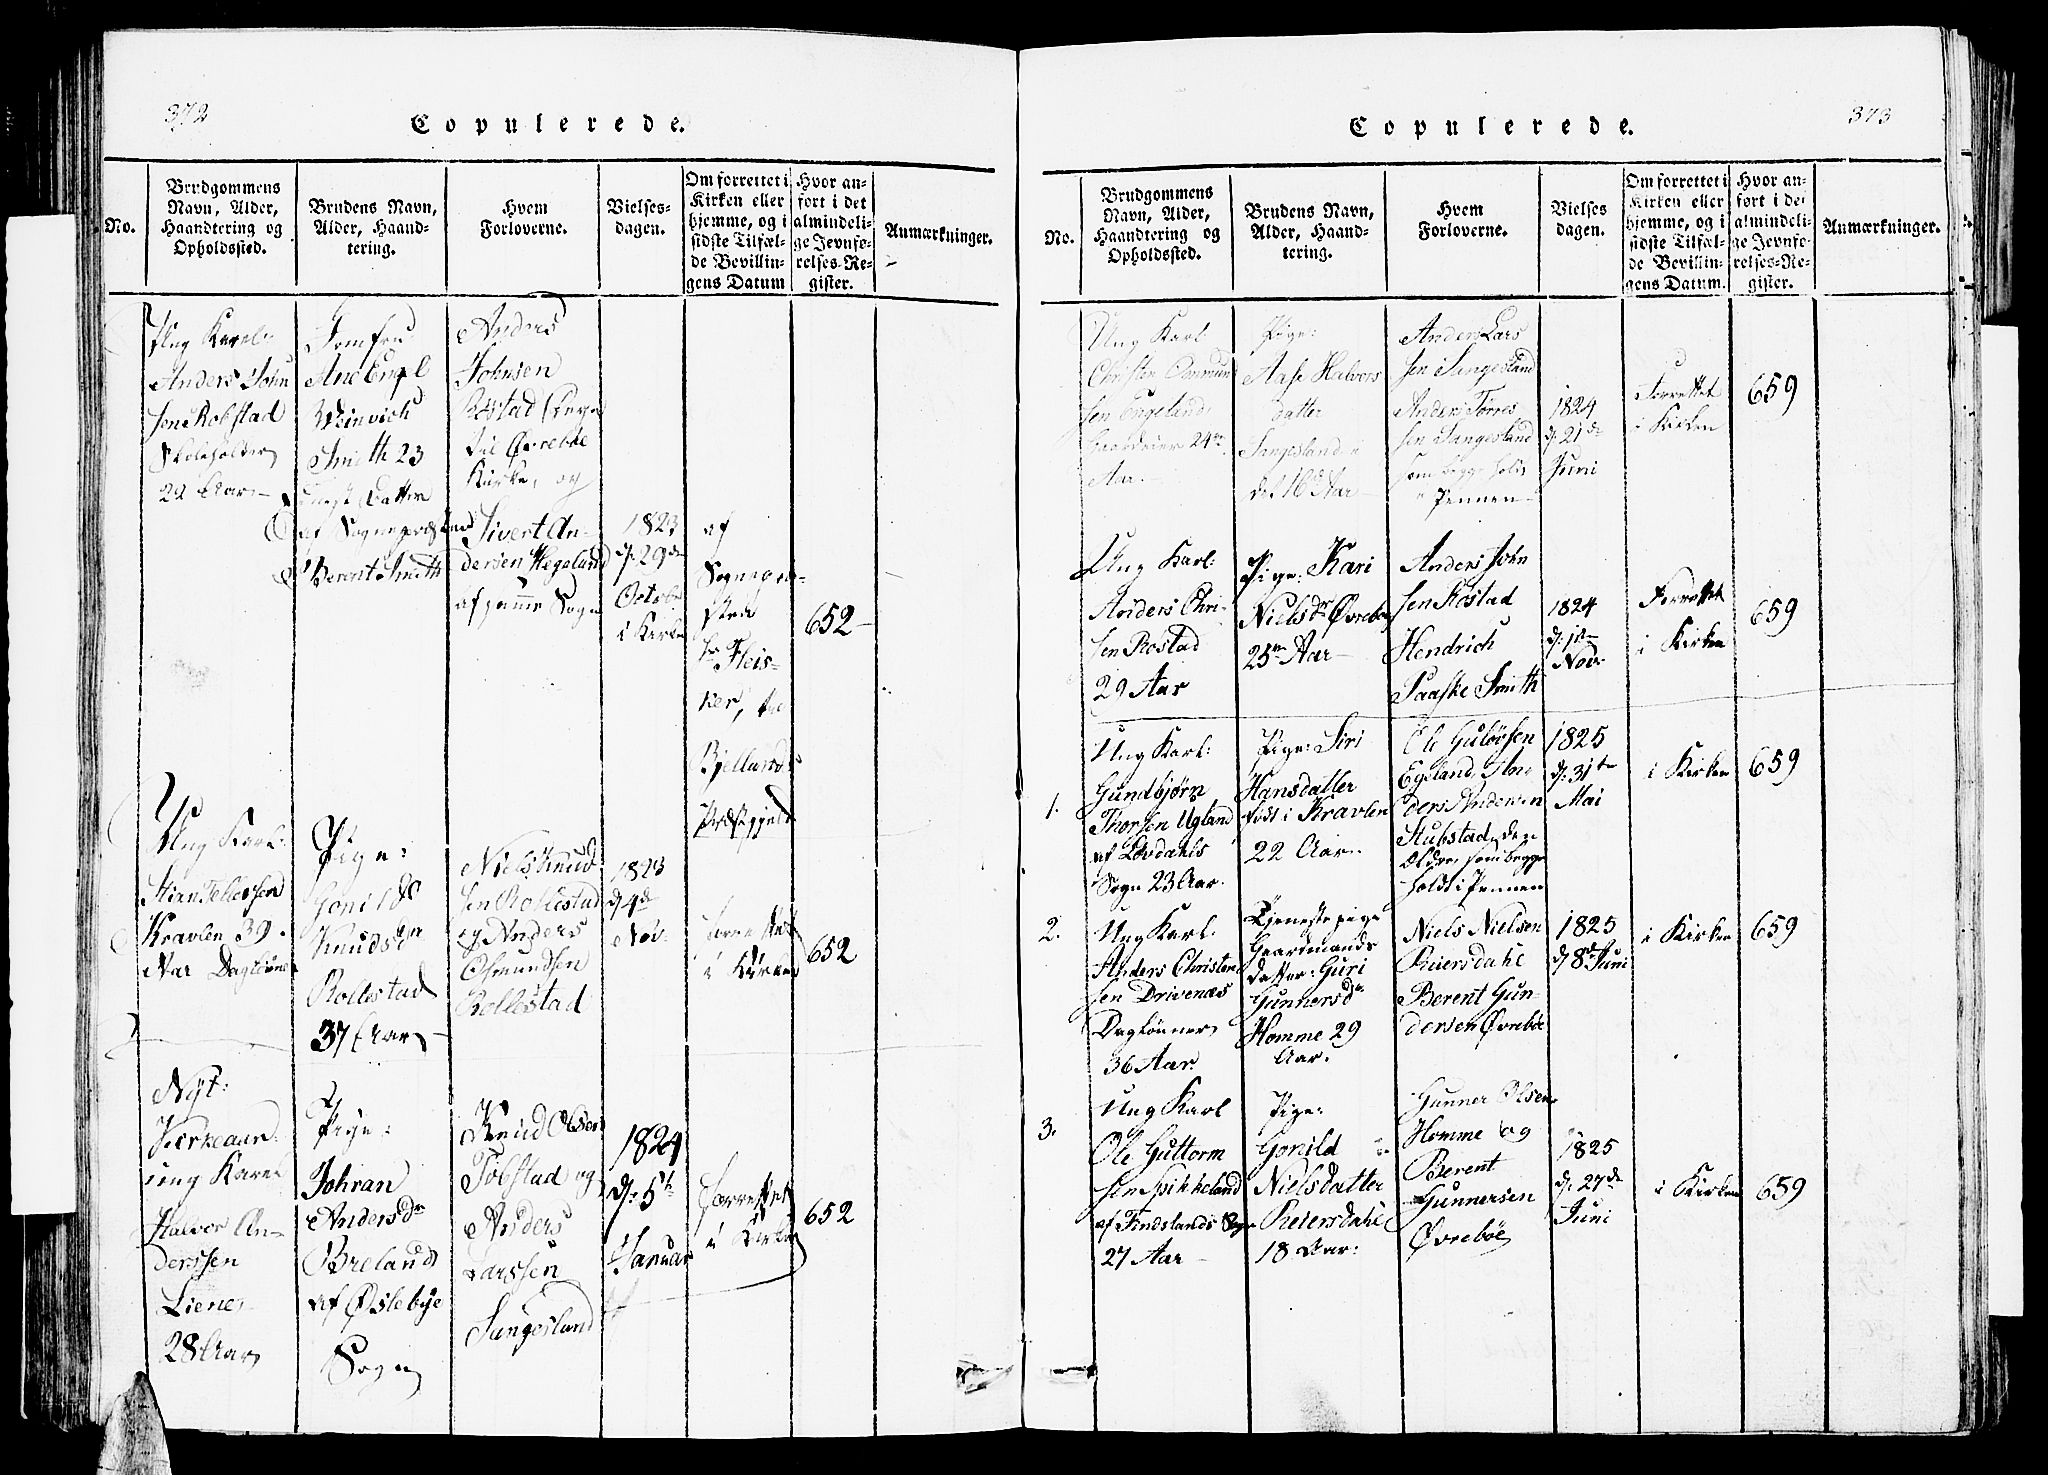 372
Copulerede.
No.
Brudgommens
Navn, Alder,
Haandtering og
Opholdssted.
Brudens Navn,
Alder, Haand-
tering.
Hvem
Forloverne.
Vielses-
dagen.
Om forrettet i
Kirken eller
hjemme, og i
sidste Tilfæl-
de Bevillin-
gens Datum
Hvor an-
fört i det
almindeli-
ge Jevnfö-
relses-Re-
gister.
Anmærkninger.
Ung Karl:
Anders John
sen Robstad
Skoleholder
22 Aar
Jomfru
Ane Engel
Weinvich
Smith 23
Datter
af Sognepræsten
Berent Smith
Anders
Johnsen
Röstad
til Øvreböe
Kirke, og
Sivert An-
dersen Hegeland
af samme Sogn
1823
d: 29de
Octobr
i Kirke
af
Sognepræ-
sten
Hr Fleis-
ner, til
Bjellands
Præstegjeld
652
Ung Karl:
Stian Tellessen
Kravlen 39
Aar Daglönner
Pige:
Gonild
Knudsdr
Rollestad
37 Aar
Niels Knud
sen Rollestad
og Anders
Osmundsen
Rollestad
1823
d 4de
Nov:
Forrettet
i Kirken
652
Nÿt:
Kirkeaar:
ung Karl
Halvor An-
derssen
Liene
28 Aar
Pige:
Johran
Andersdr
Breland
af Øslebye
Sogn
Knud Olsen
Tobstad og
Anders
Larssen
Sangesland
1824
d: 5te
Januar
forrettet
i Kirken
652
373
Copulerede.
No.
Brudgommens
Navn, Alder,
Haandtering og
Opholdssted.
Brudens Navn,
Alder, Haand-
tering.
Hvem
Forloverne.
Vielses
dagen.
Om forrettet i
Kirken eller
hjemme, og i
sidste Tilfæl-
de Bevillin-
gens Datum.
Hvor an-
fört i det
almindeli-
ge Jevnfö-
relses-Re-
gister.
Anmærkninger.
Ung Karl:
Christen Osmund
sen Engeland
Gaardeier 24
Aar.
Pige:
Aase Halvors
datter
Sangesland
16 Aar
Anders Lars
sen Sangesland
Anders Torres
sen Sangesland
som begge holdt
i Pennen
1824
d: 21de
Juni
Forrettet
i Kirken
659
Ung Karl:
Anders Chri-
sen Rostad
29 Aar
Pige: Kari
Nielsdr Øvreböe
25 Aar
Anders John
sen Röstad
Hendrich
Paaske Smith
1824
d: 1ste
Nov:
Forrettet
i Kirken
659
1.
Ung Karl:
Gundbjörn
Thorsen Ugland
af Lövdahls
Sogn 23 Aar.
Pige: Siri
Hansdatter
födt i Kravlen
22 Aar.
Ole Gulövsen
Egeland, An-
ders Andersen
Stubstad den
Ældre, som begge
holdt i Pennen
1825
d: 31te
Mai
i Kirken
659
2.
Ung Karl:
Anders Christen
sen Drivenæs
Daglönner
36 Aar
Tjenestepige
Gaardmands
datter: Guri
Gunnersdr
Homme 29
Aar.
Niels Nielsen
Reiersdahl
Berent Gun-
dersen Øvreböe
1825
d 8de Juni
i Kirken
659
3.
Ung Karl
Ole Guttorm
sen Spikkeland
af Findslands Sogn
27 Aar
Pige:
Gonild
Nielsdatter
Reiersdahl
18 Aar:
Gunner Olsen
Homme og
Berent
Gunnersen
Øvreböe
1825
d: 27de
Juni
i Kirken
659